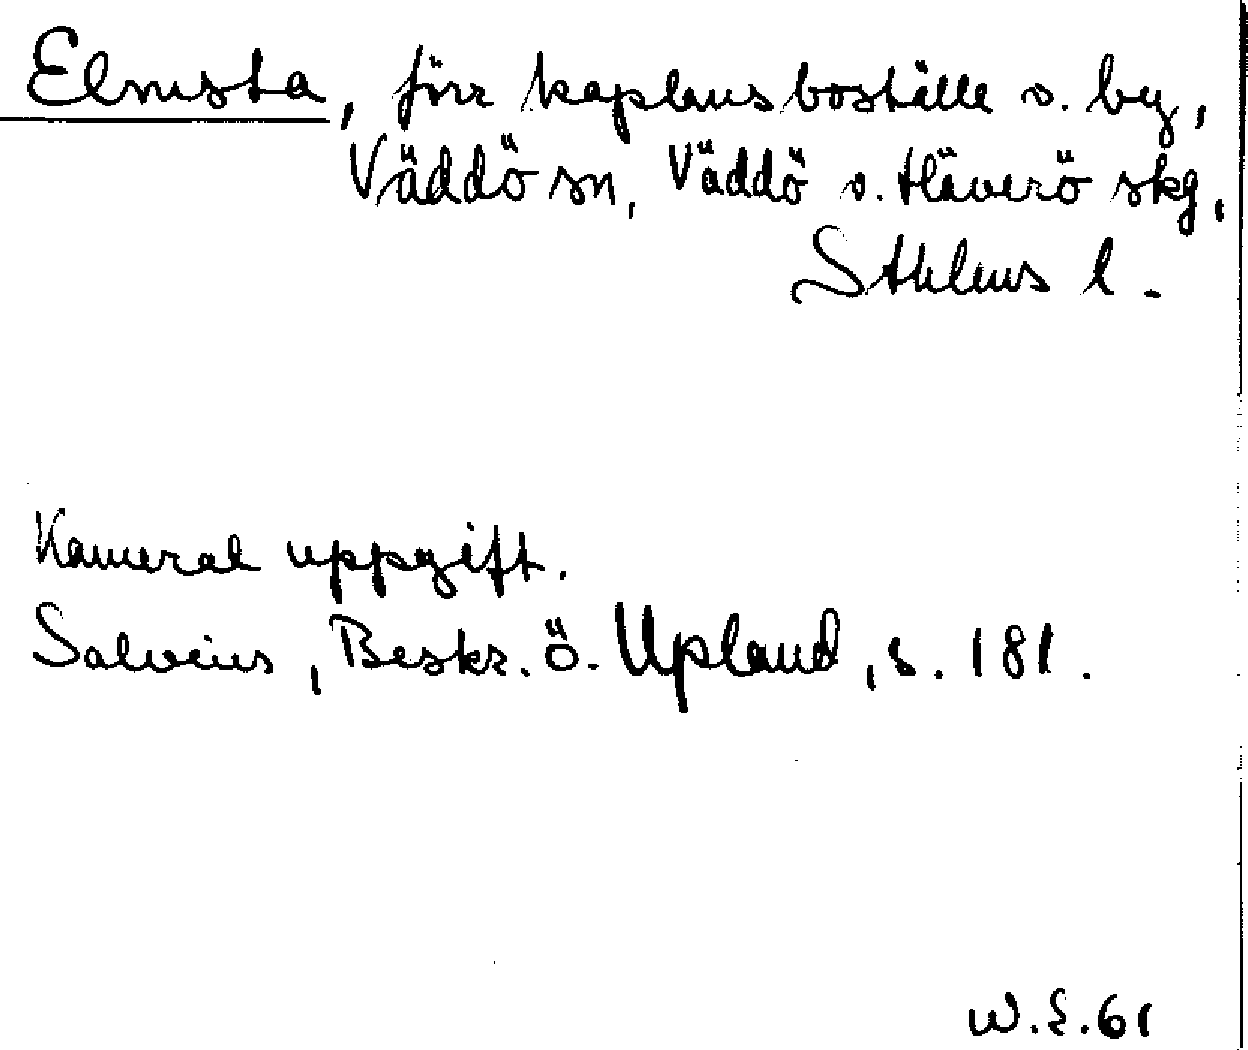 Elmsta, förr kaplansboställe o. by,
Väddö sn, Väddö o. Häverö skg,
Sthlms l.
Kameral uppgift.
Salvius, Beskr. ö. Upland, s. 181.
W.E.61